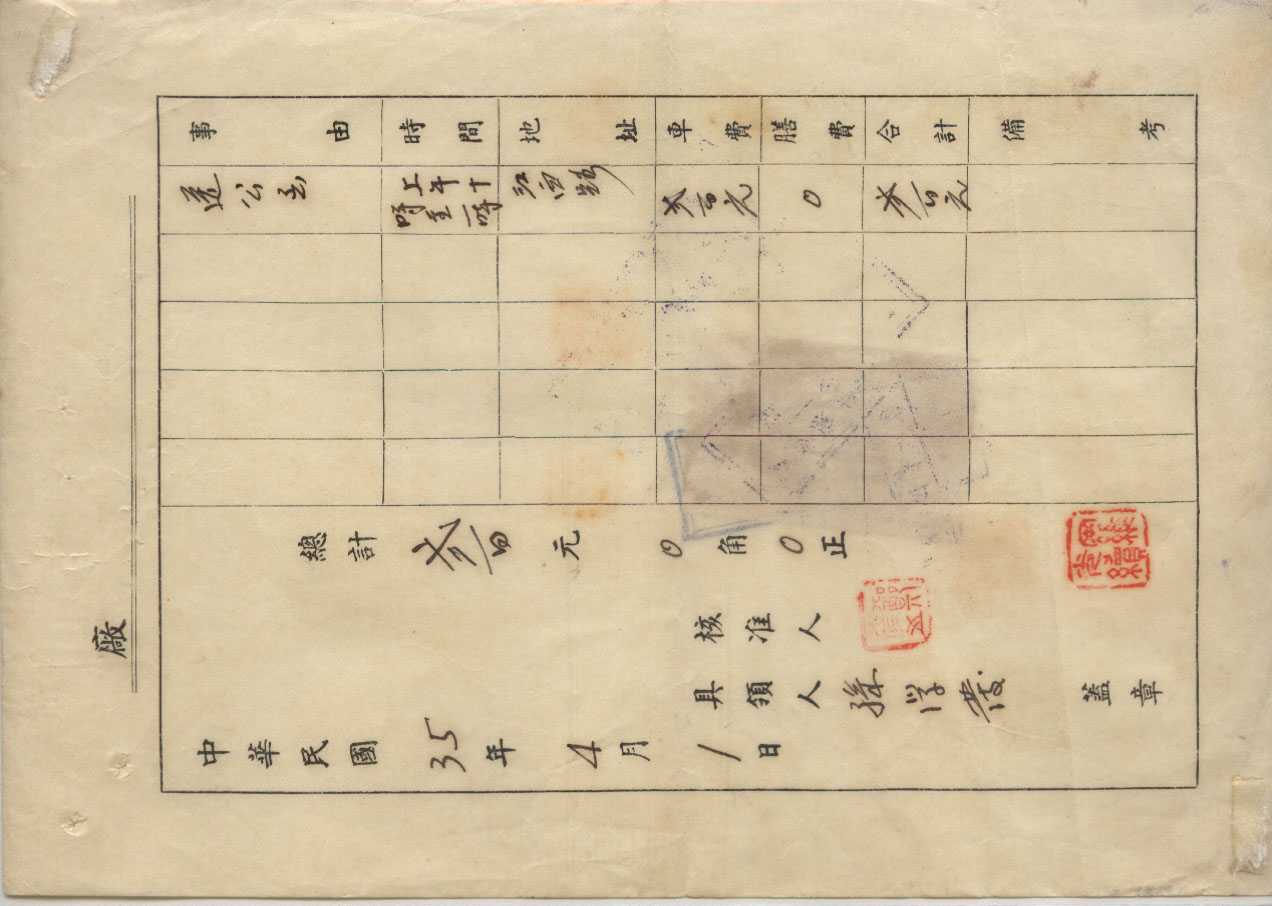 廠
事由 時間 地址 車費 膳費 合計 備考
送公 上午十時至一時 江西路 叁百元 0 叁百元
總計 叁百元0角0正
核准人
具領人 孫学發 蓋章
中華民國35年4月1日